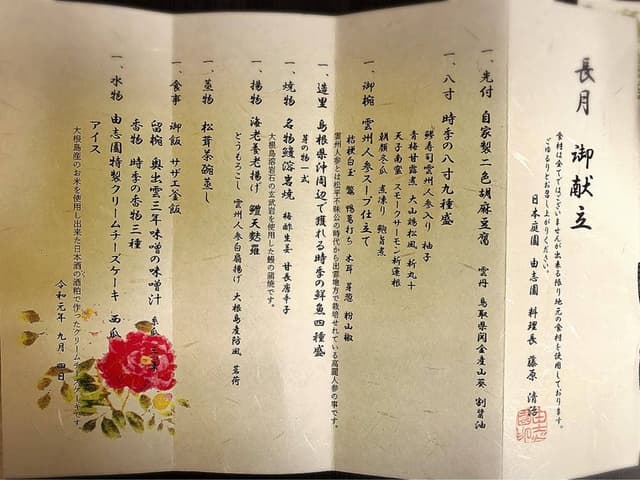 長月 御献立
食材は全てではございませんが出来る限り地元の食材を使用しております。
ごゆるりとお召し上がりください。
日本庭園 由志園 料理長 藤原 清
一、先付 自家製二色胡麻豆腐 雲丹 鳥取県関金産山葵 割醤油
一、八寸 時季の八寸九種盛
鯵寿司雲州人参入り 柚子
青梅甘露煮 大山鶏松風 祈丸十
天子南蛮 スモークサーモン祈蓮根
朝顔冬瓜 煮凍り 鮑旨煮
一、御椀 雲州人参スープ仕立て
桔梗白玉 鼈 鴨葛打ち 木耳 芽葱 粉山椒
雲州人参とは松平不昧公の時代から出雲地方で栽培せれている高麗人参の事です。
一、造里 島根県沖周辺で獲れる時季の鮮魚四種盛
芽の物一式
一、焼物 名物鰻溶岩焼 梅酢生姜 甘長唐辛子
大根島溶岩石の玄武岩を使用した鰻の蒲焼です。
一、揚物 海老養老揚げ 鱧天麩羅
とうもろこし 雲州人参白扇揚げ 大根島産防風 茗荷
一、蒸物 松茸茶碗蒸し
一、食事 御飯 サザエ釜飯
留椀 奥出雲三年味噌の味噌汁
香物 時季の香物三種
一、水物 由志園特製クリームチーズケーキ 西瓜
アイス
大根島産のお米を使用し出来た日本酒の酒粕で作ったクリームチーズケーキです。
令和元年 九月 四日